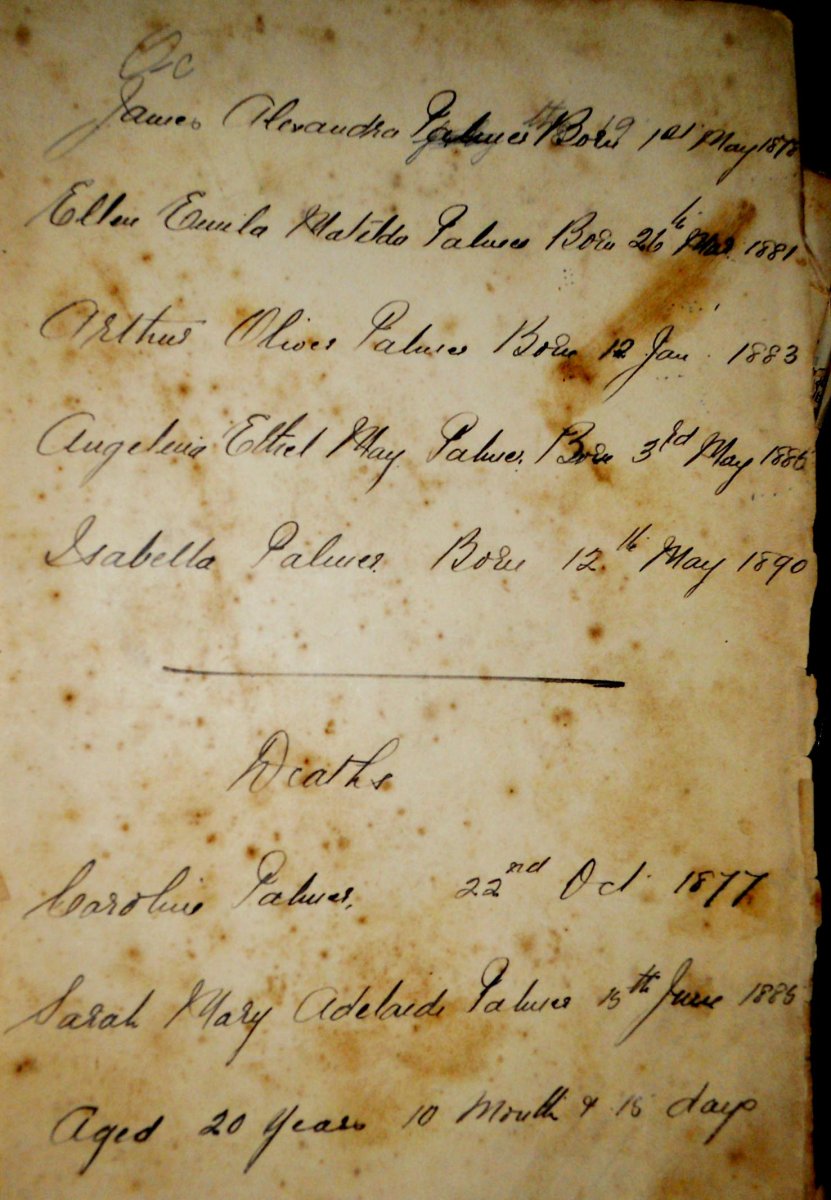 James Alexandra Palmer Born 1st May 1878
Ellen Emila Matilda Palmer Born 26th Mar 1881
Arthur Oliver Palmer Born 12 Jan 1883
Angelina Ethel May Palmer Born 3rd May 1886
Isabella Palmer Born 12th May 1890
Deaths
Caroline Palmer, 22nd Oct 1877
Sarah Mary Adelaide Palmer 15th June 1885
Aged 20 Years 10 Month & 15 days